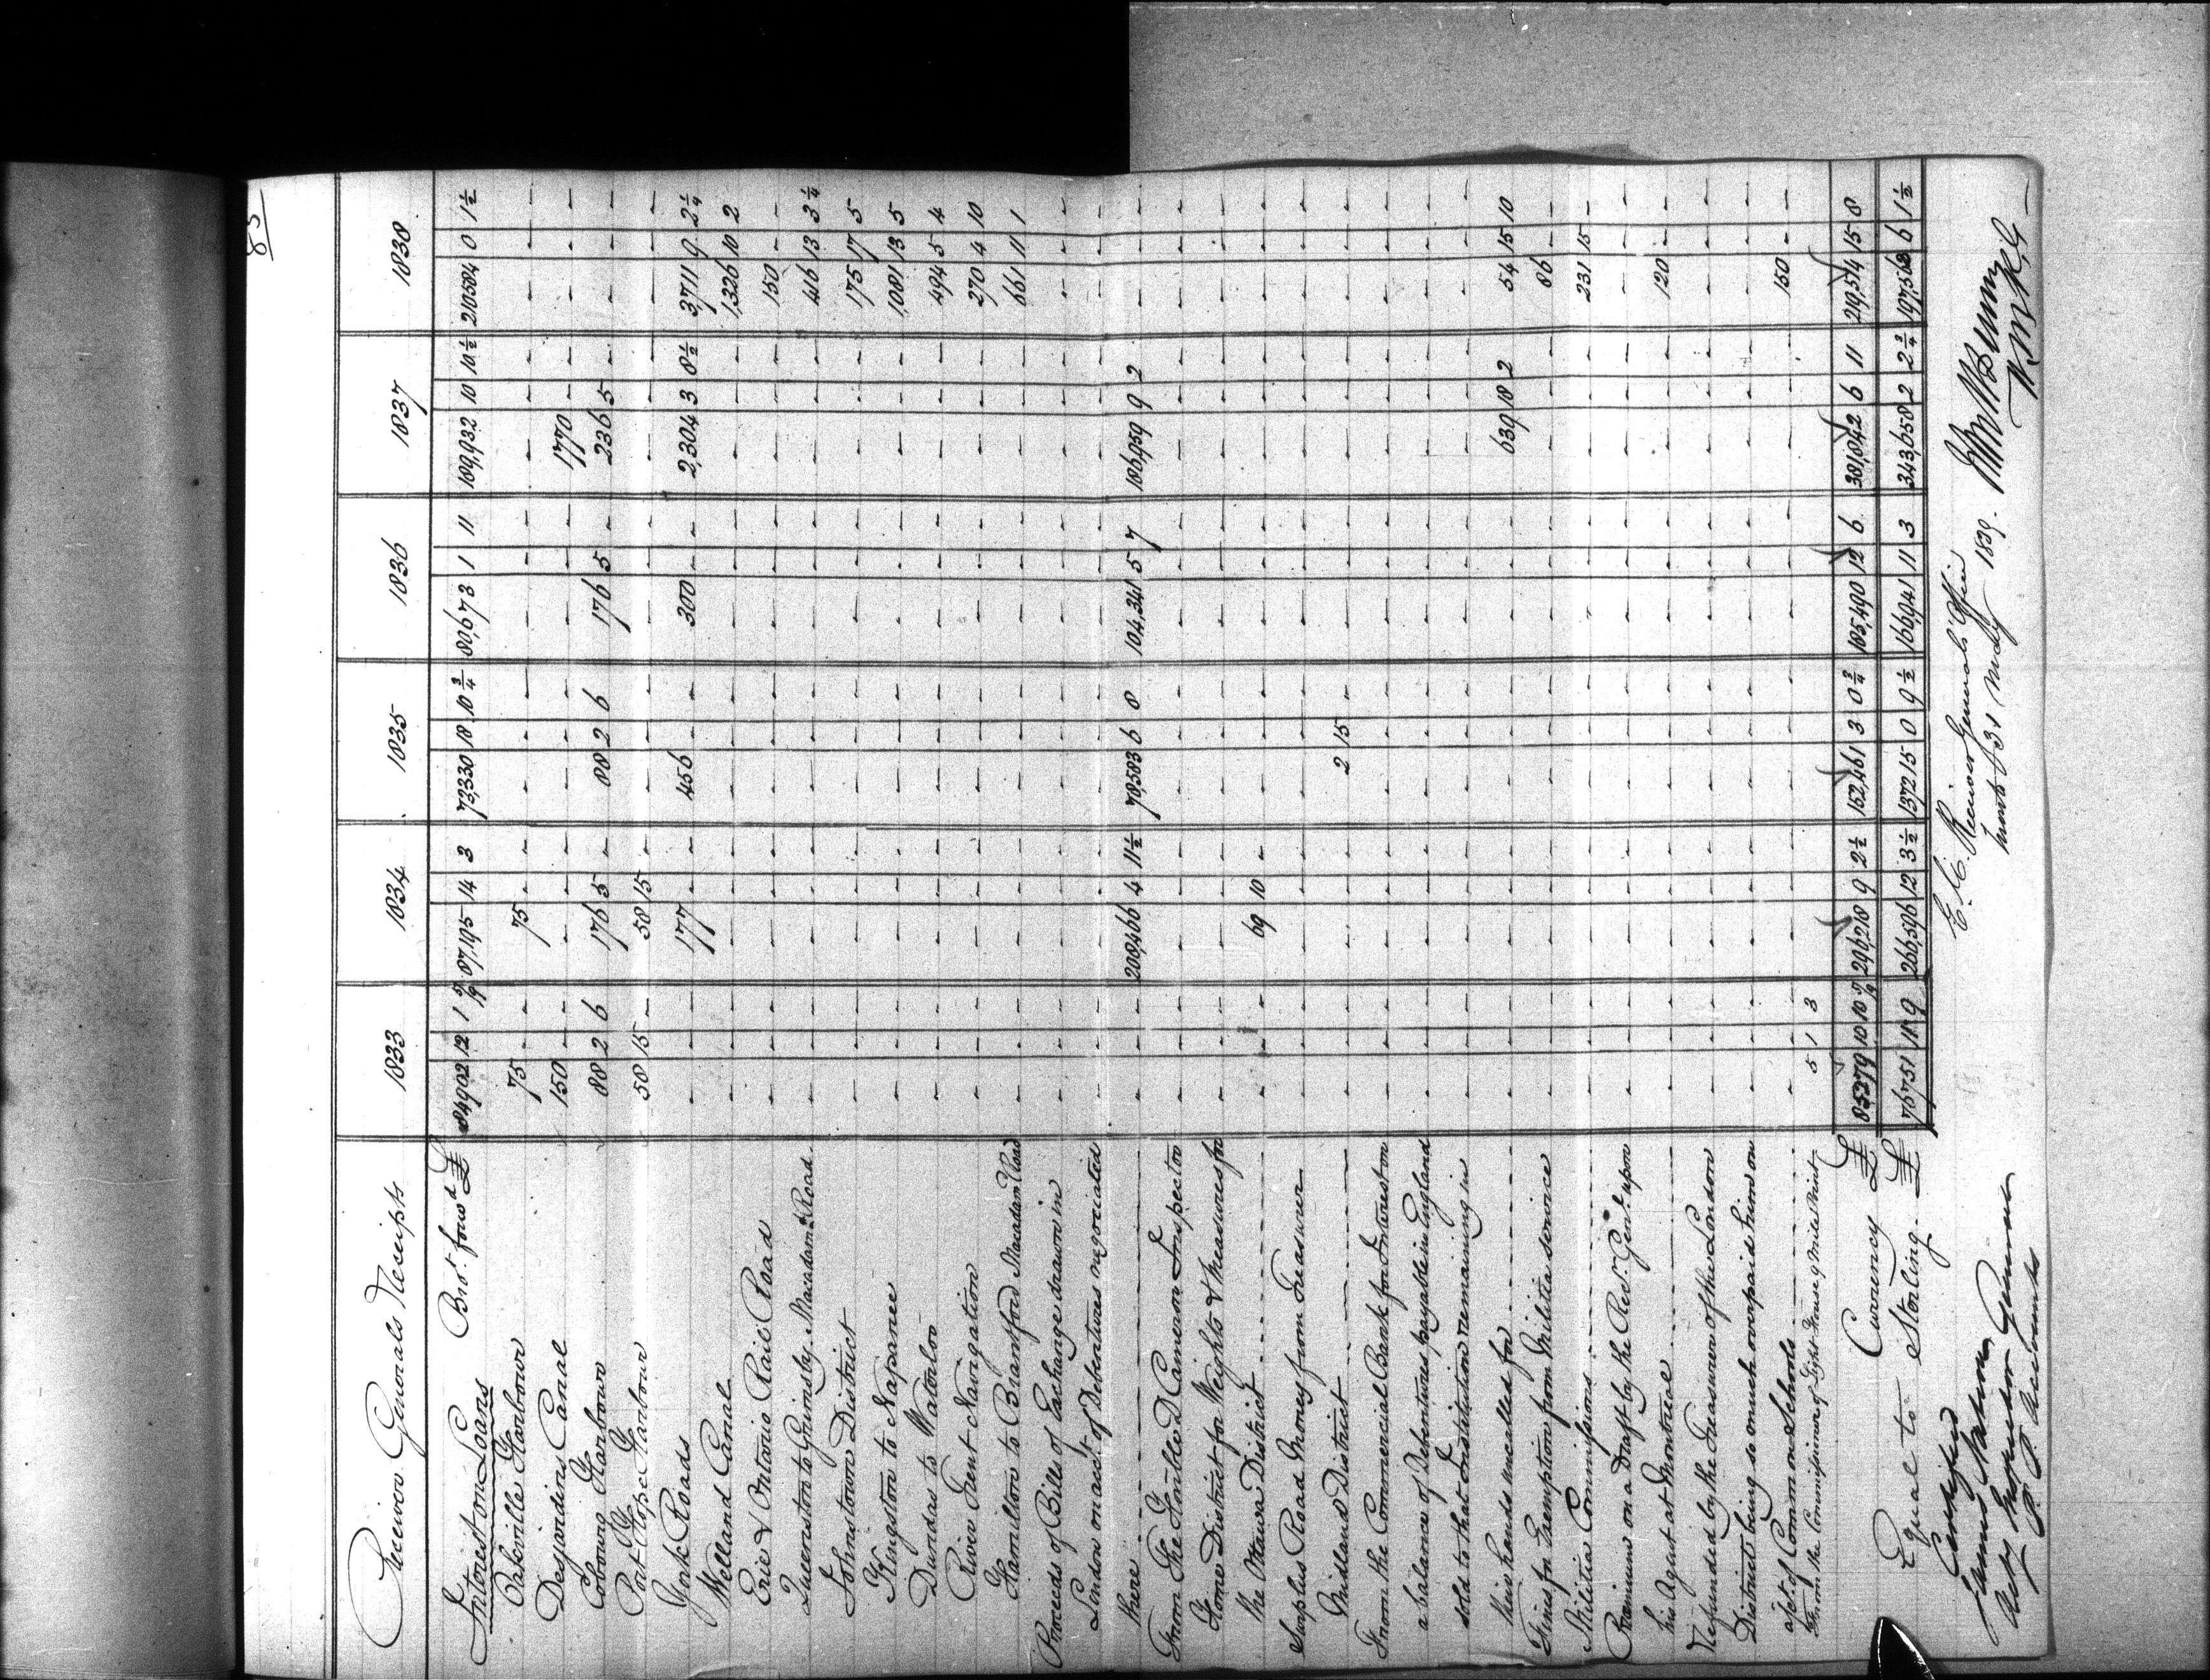 85
Receiver Generals Receipts 1833 1834 1835 1836 1837 1838
Interest on Loans Bro.t forw.d £ 84902 12 1 5/9 87,195 14 3 73,330 18 10 3/4 80,673 1 11 189,932 10 10 1/2 210584 0 1 1/2
Oakville Harbour 75 - - 75 - - - - - - - - - - - - - -
Desjardins Canal 150 - - - - - - - - - - - 1770 - - - - -
Cobourg Harbour 88 2 6 176 5 - 88 2 6 176 5 - 236 5 - - - -
Port Hope Harbour 58 15 - 58 15 - - - - - - - - - - - - -
York Roads - - - 177 - - 456 - - 300 - - 2,304 3 8 1/2 3,711 9 2 1/4
Welland Canal - - - - - - - - - - - - - - - 1,326 10 2
Erie & Ontario Rail Road - - - - - - - - - - - - - - - 150 - -
Queenston to Grimsby Macadam.d Road - - - - - - - - - - - - - - - 416 13 3 1/4
Johnstown District - - - - - - - - - - - - - - - 175 17 5
Kingston to Napanee - - - - - - - - - - - - - - - 1,081 13 5
Dundas to Waterloo - - - - - - - - - - - - - - - 494 5 4
River Trent Navigation - - - - - - - - - - - - - - - 270 4 10
Hamilton to Brantford Macadam Road - - - - - - - - - - - - - - - 661 11 1
Proceeds of Bills of Exchange drawn in
London on acct of Debentures negociated
there - - - 208,466 4 11 1/2 78,583 6 8 104,341 5 7 186,959 9 2 - - -
From The Honble D Cameron Inspector
Home District for Weights & Measures for
the Ottawa District - - - 69 10 - - - - - - - - - - - - -
Surplus Road Money from Treasurer
Midland District - - - - - - 2 15 - - - - - - - - - -
From the Commercial Bank for Interest on
a balance of Debentures payable in England
sold to that Institution remaining in
their hands uncalled for - - - - - - - - - - - - 639 18 2 54 15 10
Fines for Exemption from Militia service - - - - - - - - - - - - - - - 86 - -
Militia Commissions - - - - - - - - - - - - - - - 231 15 -
Premium on a Draft by the Recr Genl upon
his Agent at Montreal - - - - - - - - - - - - - - - 120 - -
Refunded by the Treasurer of the London
District being so much overpaid him on
acct of Common Schools - - - - - - - - - - - - - - - 150 - -
From the Commissioners of Light House 9 Mile Point 5 1 3
Currency £ 85279 10 10 5/9 296,218 9 2 1/2 152,461 3 0 3/4 185,490 12 6 381,842 6 11 219,514 15 8
Equal to Sterling £ 76751 11 9 266,596 12 3 1/2 137215 0 9 1/2 166,941 11 3 343,658 2 2 3/4 197,563 6 1 1/2
Certified
E. E. Receiver Generals Office
31 May 1839.